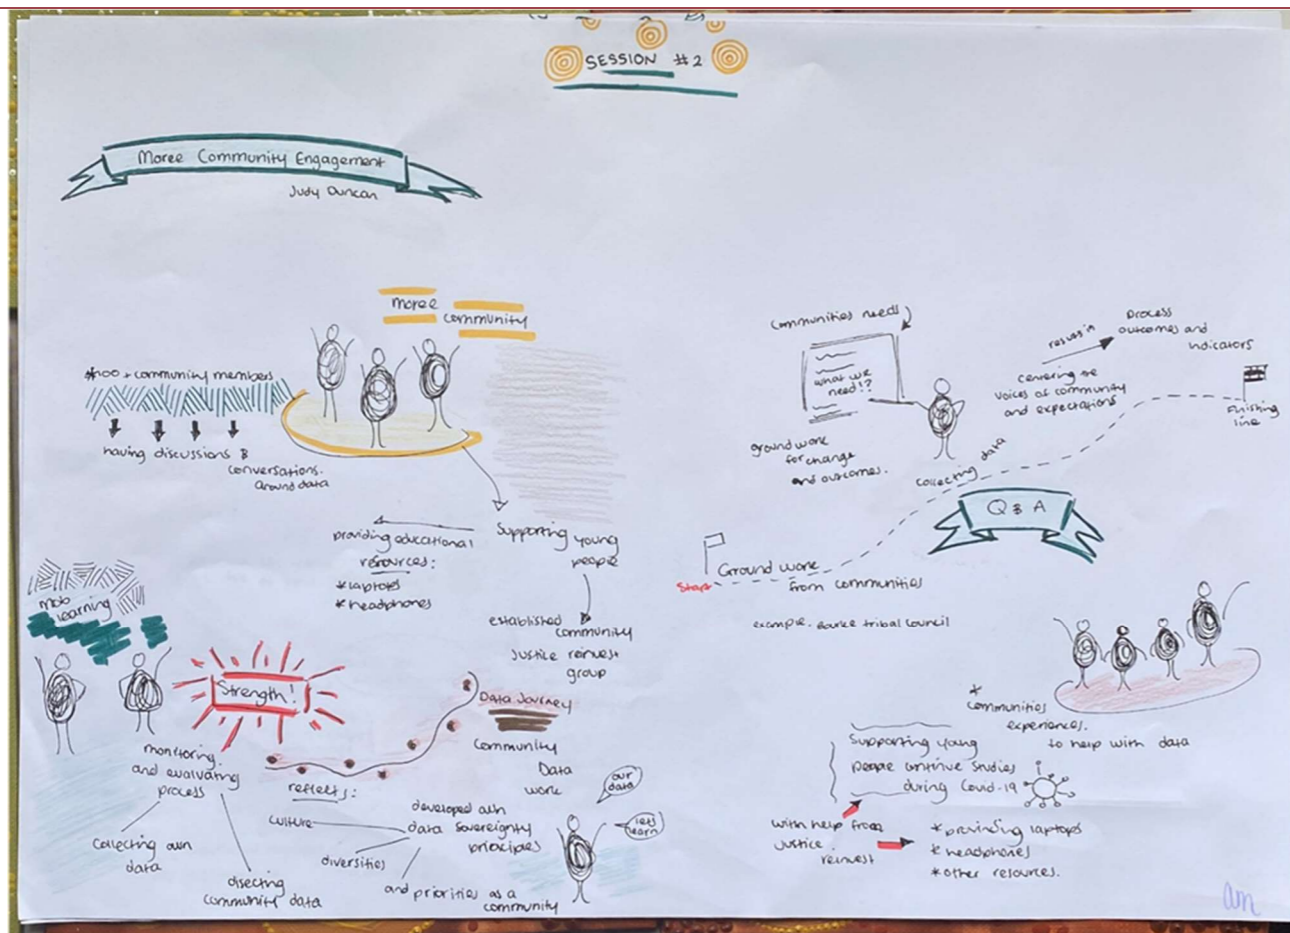 SESSION #2
Moree Community Engagement
Judy Duncan
Moree
Community
100 + community members
having discussions &
conversations.
around data
Supporting young
people
providing educational
resources:
* laptops
* headphones
established
community
Justice reinvest
group
mob
learning
Strength!
monitoring
and evaluating
process
collecting own
data
disecting
community data
Data Journey
Community
Data
work
reflects:
developed own
data sovereignty
principles
culture
diversities
and priorities as a
community
our
data
lets
learn
communities needs
what we
need!?
ground work
for change
and outcomes.
results in
process
outcomes and
indicators
centering the
voices of community
and expectations
finishing
line
collecting data
Q & A
Start
Ground work
from communities
example. Bourke tribal council
* communities
experiences.
to help with data
Supporting young
people continue studies
during Covid-19
with help from
Justice
reinvest
* providing laptops
* headphones
* other resources.
am